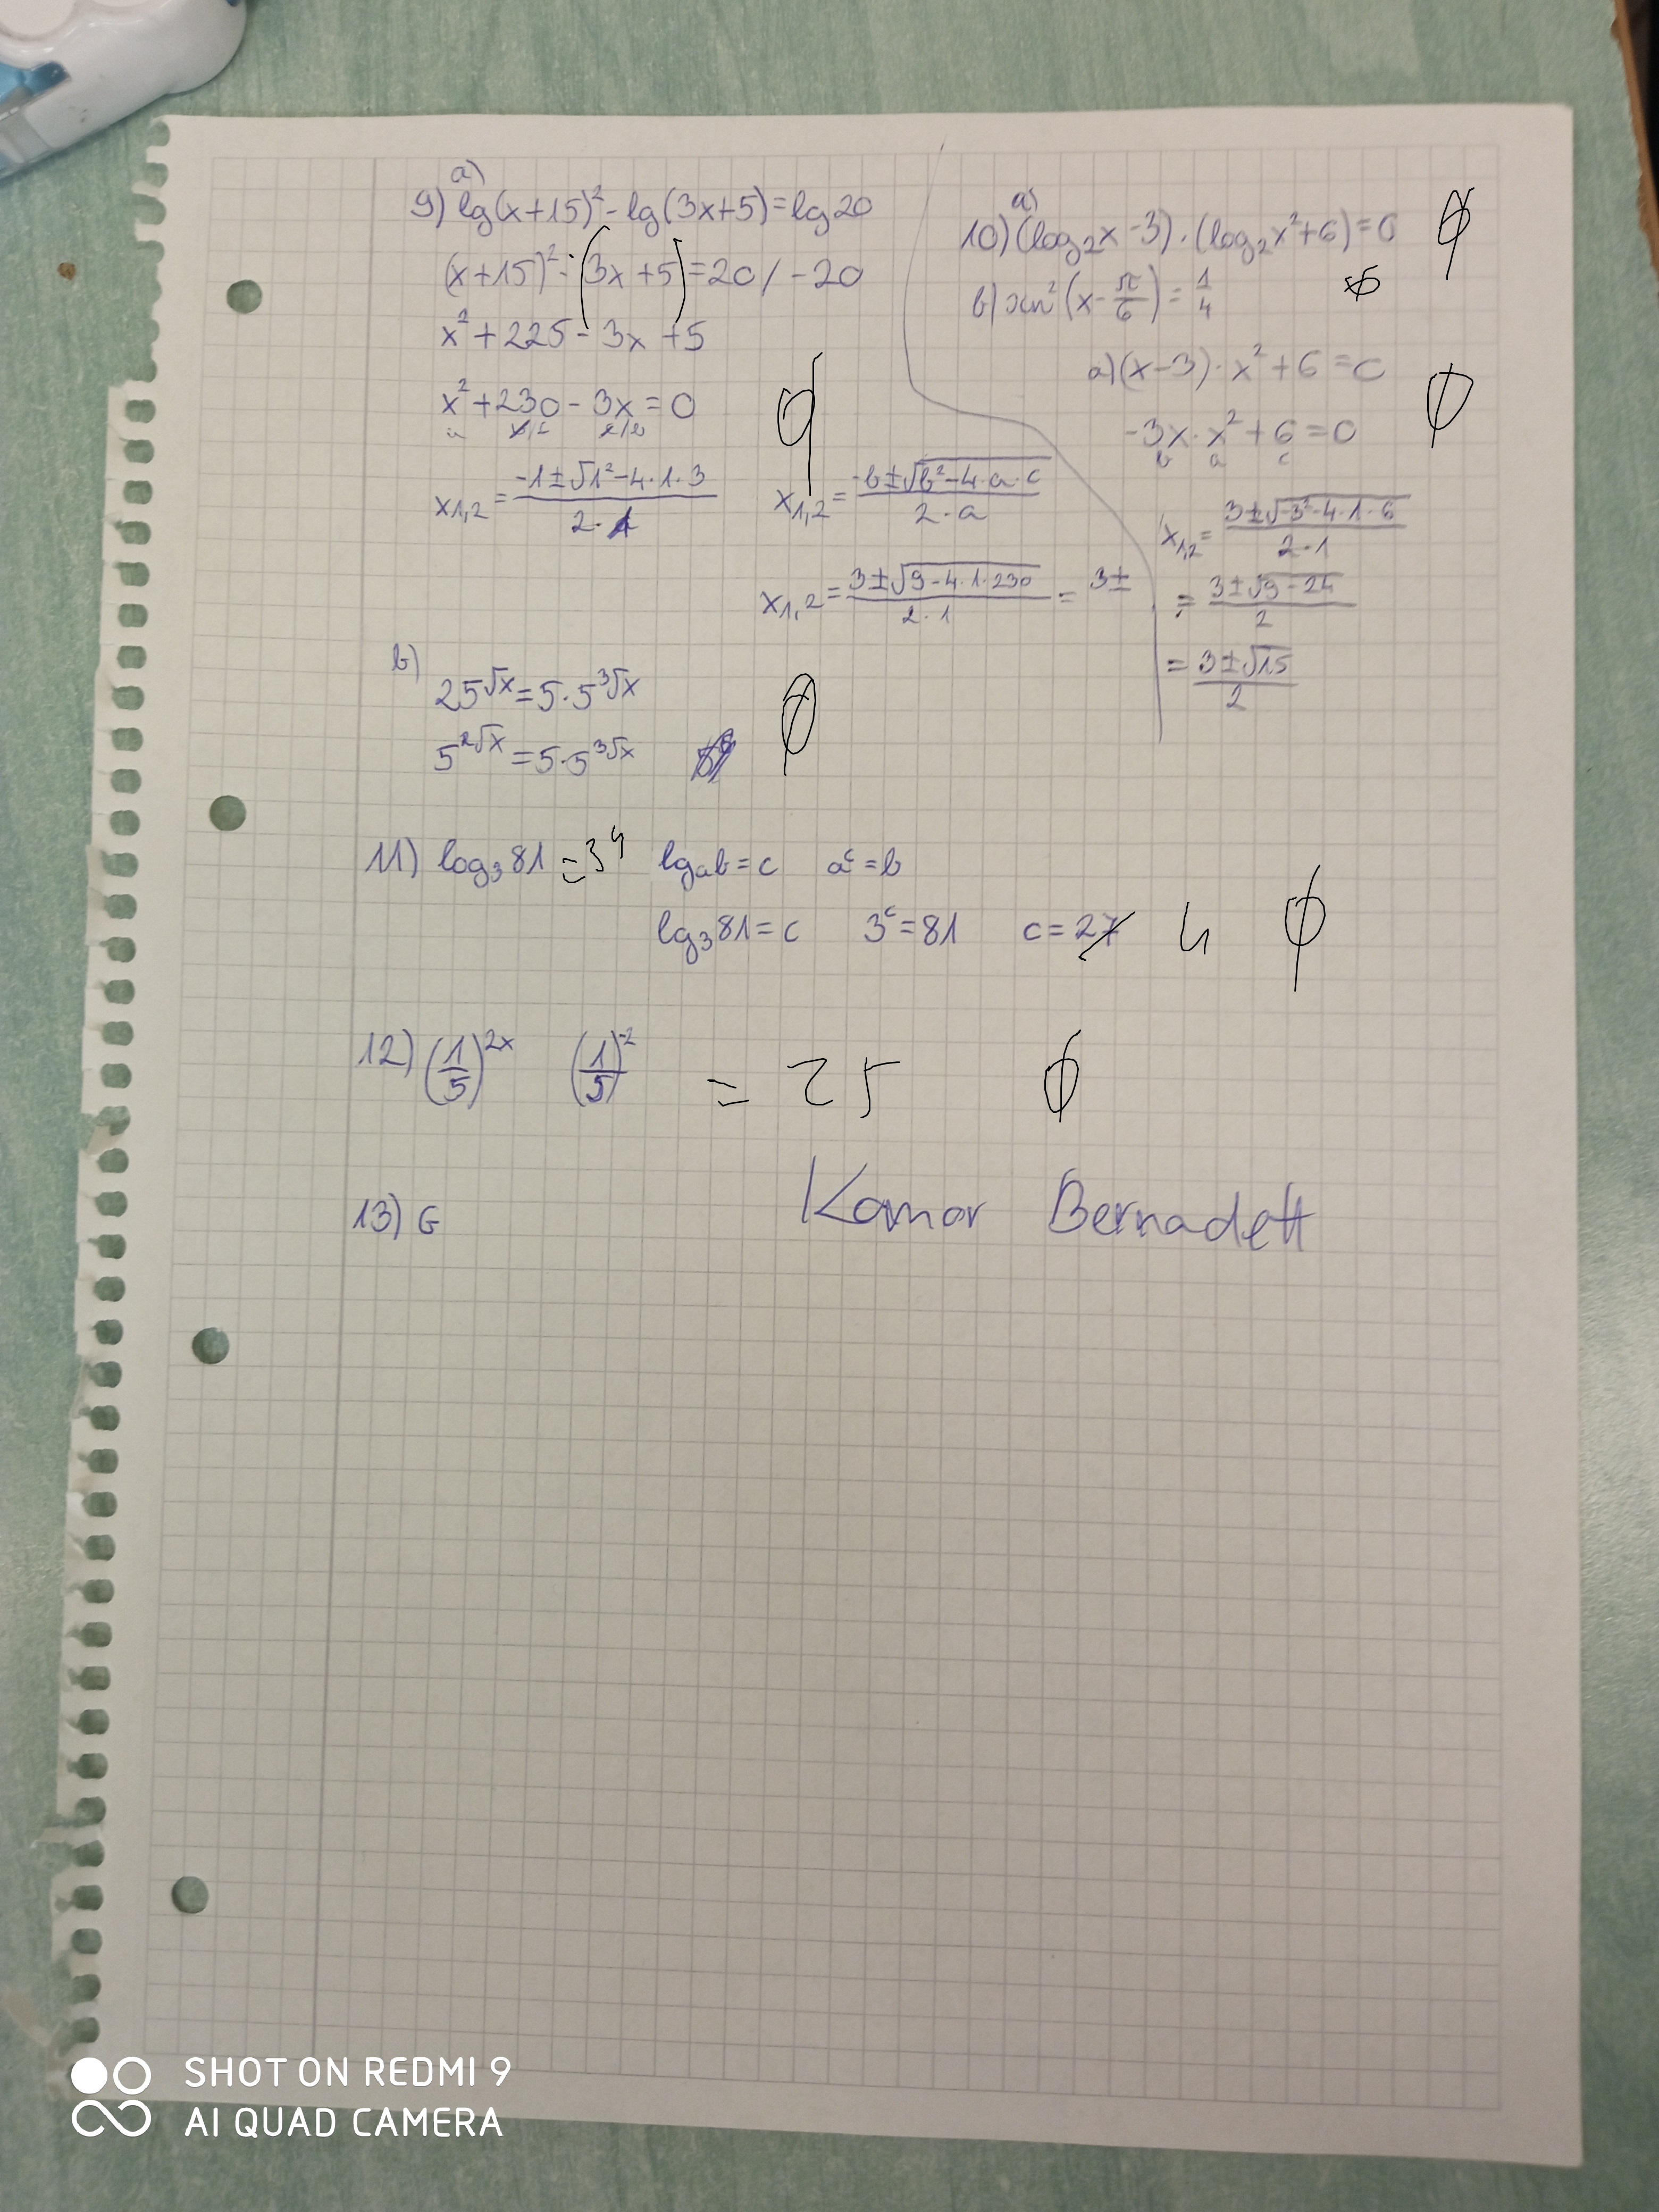 a)
9) lg(x+15)² - lg(3x+5) = lg20
(x+15)² - (3x+5) = 20 / -20
x² + 225 - 3x + 5
x² + 230 - 3x = 0
x₁,₂ = (-1 ± √1² - 4·1·3) / 2·1
x₁,₂ = (-b ± √b² - 4·a·c) / 2·a
x₁,₂ = (3 ± √9 - 4·1·230) / 2·1 = 3 ±
b)
25^√x = 5·5^3√x
5^2√x = 5·5^3√x
a)
10) (log₂x - 3)·(log₂x² + 6) = 0
b) sin²(x - π/6) = 1/4
a) (x-3)·x² + 6 = 0
-3x·x² + 6 = 0
b a c
x₁,₂ = (3 ± √-3² - 4·1·6) / 2·1
= (3 ± √9 - 24) / 2
= (3 ± √15) / 2
11) log₃81 = 3⁴ lgₐb = c aᶜ = b
lg₃81 = c 3ᶜ = 81 c = 27 4
12) (1/5)^2x (1/5)^-2 = 25
13) G
Komor Bernadett
SHOT ON REDMI 9
AI QUAD CAMERA